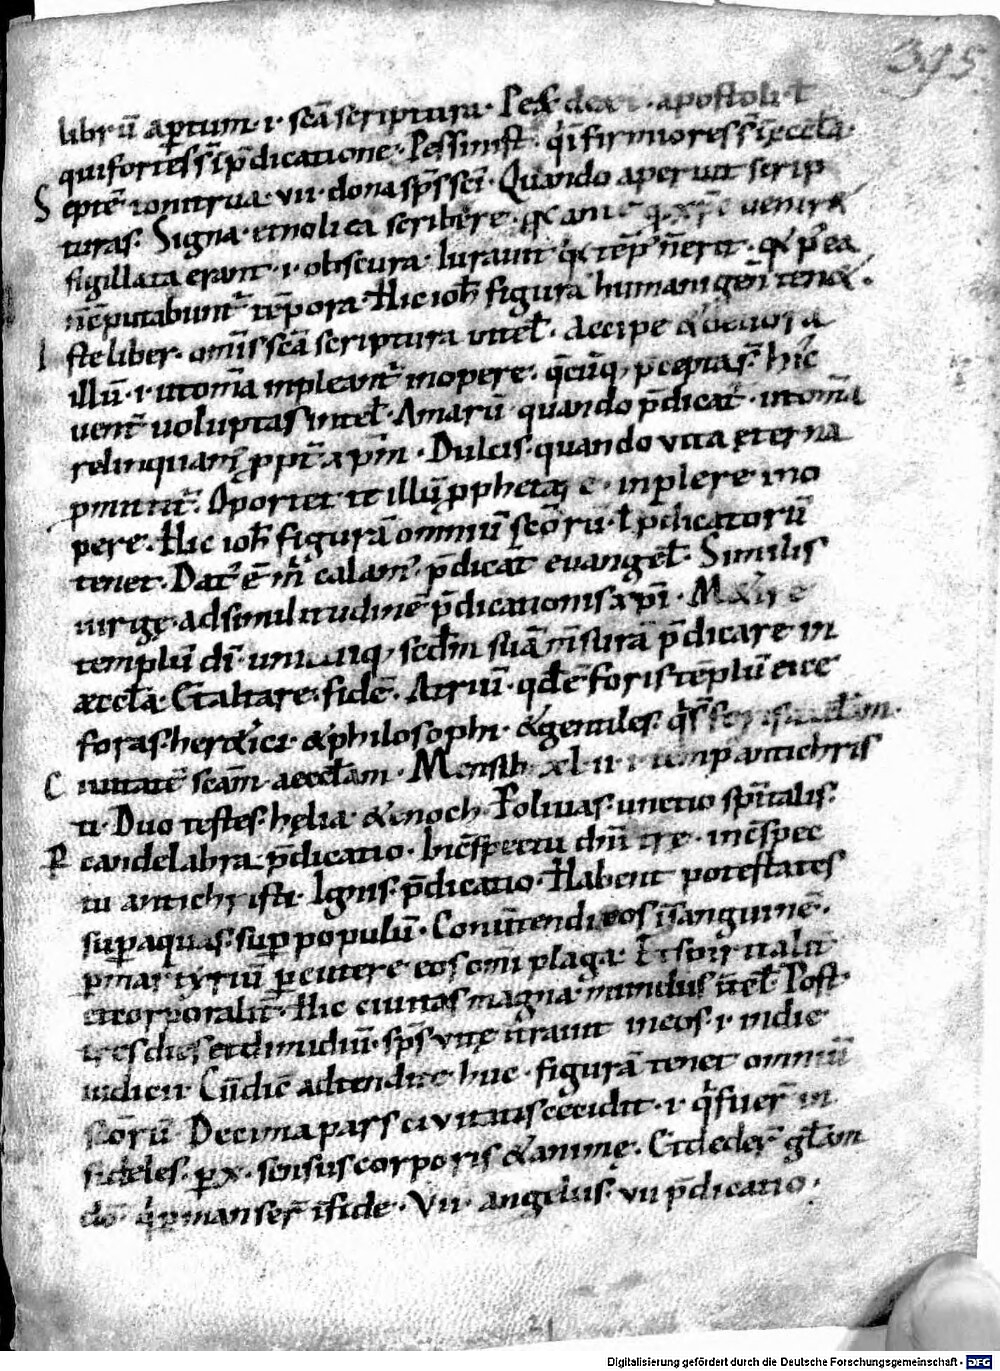 395
librū aptum · i · scā scriptura · Pes dext · apostoli · ł
qui fortes s̄ ī p̄dicatione · Pes sinist̄ · q̄ īfirmiores s̄ ī æccła ·
Septē tonitrua · vii · dona sps̄ sc̄i · Quando aperuit scrip
turas · Signa · et noli ea scribere · q̄ ante q̄ xp̄c venir&
sigillata erant · i · obscura · Iurauit q̄ tēp̄ n̄ erit · q̄ p̄ ea
n̄ cputabunt̄ tēpora · Hic ioh̄ figurā humani gen̄ ten& ·
Iste liber · omīs scā scriptura inteł · Accipe & devora
illū · i · ut om̄a inpleant̄ in opere · q̄cūq, p̄cepta s̄ · hīc
uent̄ uoluptas inteł · Amarū quando p̄dicat̄ · ut om̄a
relinquam̄ ppt̄ xp̄m · Dulcis · quando vita ęterna
pmittit̄ · Oportet te illū pphetare · inplere in o
pere · Hic ioh̄ figurā omniū sc̄orū · ł p̄dicatorū
tenet · Dat̄ ē m̄ calam̄ · p̄dicat̄ euangeł · Similis
uirgę · ad similitudinē p̄dicationis xp̄i · M&ire
templū dī · unicuiq, scdm̄ suā m̄surā p̄dicare in
æccła · Et altare · fidē · Atriū · qđ ē foris tēplū eice
foras · her&ici · & philosophi · & gentiles · q̄ s̄ foris æccłam ·
Ciuitatē scam̄ · aeccłam · Mensib · xl · ii · i · temp̄ antichris
ti · Duo testes · helia · & enoch · Folivas · unctio sp̄italis ·
P candelabra · p̄dicatio · In c̄spectu dn̄i trę · in c̄spec
tu antichristi · Ignis · p̄dicatio · Habent potestates
sup aquas · sup populū · Conūtendi eos ī sanguinē ·
p martyriū pcutere eos omī plaga · Et spiritalit̄
et corporalit̄ · Hic ciuitas magna · mundus inteł · Post
tres dies et dimidiū · sps̄ vitę īt̄rauit in eos · i · in die
iudicii · Cū dic̄ adtendite huc · figurā tenet omniū
sc̄orū · Decima pars civitatis cecidit · i · q̄ fuer̄ in
fideles · p x · sensus corporis & animę · Et deder̄ głam
dō · q̄ pmanser̄ ī fide · Vii · angelus · vii p̄dicatio ·
Digitalisierung gefördert durch die Deutsche Forschungsgemeinschaft - DFG